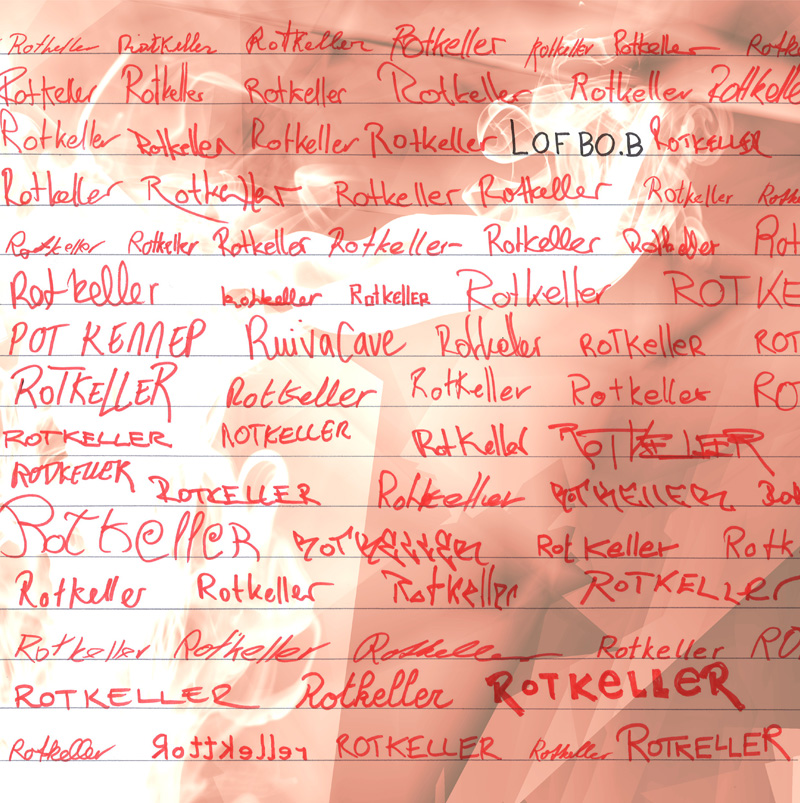 Rotkeller Rotkeller Rotkeller Rotkeller Rotkeller Rotkeller Rotk
Rotkeller Rotkeller Rotkeller Rotkeller Rotkeller Rotkelle
Rotkeller Rotkeller Rotkeller Rotkeller LOFBO.B ROTKELLER
Rotkeller Rotkeller Rotkeller Rotkeller Rotkeller Rotk
Rotkeller Rotkeller Rotkeller Rotkeller Rotkeller Rotkeller Rot
Rotkeller Rotkeller RotKeller Rotkeller ROTKE
POT KEЛЛEP RuivaCave Rotkeller ROTKelleR ROT
ROTKELLER Rotkeller Rotkeller Rotkeller RO
ROTKELLER ROTKELLER RotKeller ROTKELLER
ROTKELLER ROTKELLER Rotkeller ROTKELLER
RotkelleR ROTKELLER Rot Keller Rotk
Rotkeller Rotkeller Rotkeller ROTKELLer
Rotkeller Rotkeller Rotkeller Rotkeller RO
ROTKELLER Rotkeller ROTKeLLeR
Rotkeller Rottkeller ROTKELLER Rotkeller ROTKELLER